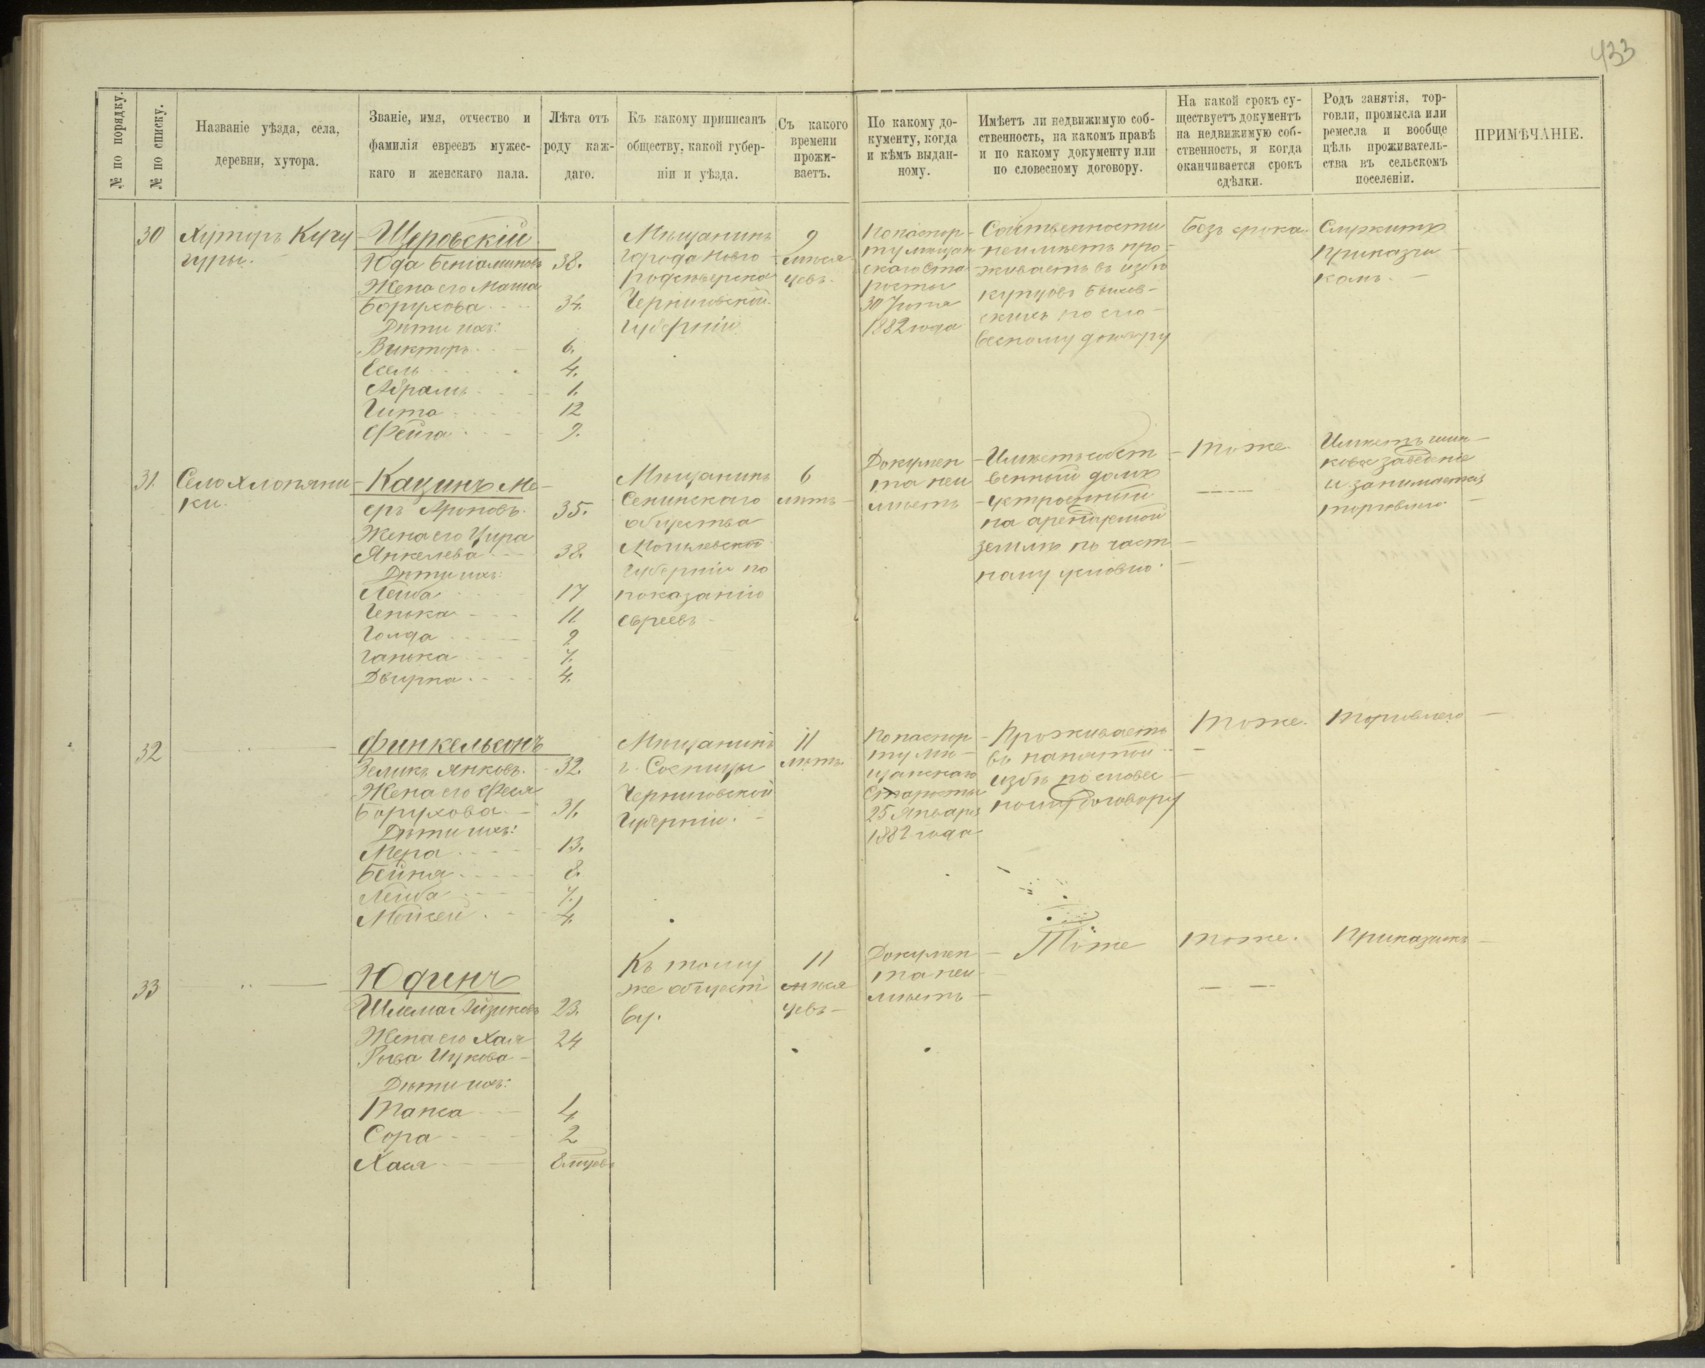 433
№ по порядку.
№ по списку.
Названіе уѣзда, села,
деревни, хутора.
Званіе, имя, отчество и
фамилія евреевъ мужес-
каго и женскаго пала.
Лѣта отъ
роду каж-
даго.
Къ какому приписанъ
обществу, какой губер-
ніи и уѣзда.
Съ какого
времени
прожи-
ваетъ.
По какому до-
кументу, когда
и кѣмъ выдан-
ному.
Имѣетъ ли недвижимую соб-
ственность, на какомъ правѣ
и по какому документу или
по словесному договору.
На какой срокъ су-
ществуетъ документъ
на недвижимую соб-
ственность, и когда
оканчивается срокъ
сдѣлки.
Родъ занятія, тор-
говли, промысла или
ремесла и вообще
цѣль проживатель-
ства въ сельскомъ
поселеніи.
ПРИМѢЧАНІЕ.
30
Хуторъ Кучу
гуры.
Щеровскій
Юда Беніаминовъ 38.
Жена его Маша
Борухова 34.
Дѣти ихъ:
Викторъ 6.
Есель 4.
Абрамъ 1.
Гита 12
Фейга 9.
Мѣщанинъ
города Новго
родсѣверска
Черниговской
Губерніи
9
мѣся
цевъ.
По паспор
ту мѣщан
скаго ста
росты
30 Іюня
1882 года
Собственности
не имѣетъ про-
живаетъ въ избѣ
купцовъ Быков-
скихъ по сло-
весному договору
Безъ срока
Служитъ
Приказчи
комъ.
31
Село Хлопяни
ки.
Кацинъ Ме-
еръ Ароновъ. 35.
Жена его Цира
Янкелева 38.
Дѣти ихъ:
Лейба 17
Генька 11.
Голда 9
Ганька 7.
Двурка 4.
Мѣщанинъ
Сенинскаго
общества
Могилевской
Губерніи по
показанію
евреевъ
6
лѣтъ
Докумен
та неи
мѣетъ
Имѣетъ собст
венный домъ
устроенный
на арендуемой
землѣ по част
ному условію.
тоже
Имѣетъ шин
ковое заведение
и занимается
торговлею
32
Финкельсонъ
Зеликъ Янковъ. 32.
Жена его Фейга
Борухова 31.
Дѣти ихъ:
Мера 13.
Бейня 8.
Лейба 7.
Мойсей 4.
Мѣщанинъ
г. Сосницы
Черниговской
Губерніи.
11
лѣтъ
По паспор
ту мѣ-
щанскаго
старосты
25 Января
1882 года
Проживаетъ
въ нанятой
избѣ по словес
ному договору
тоже.
торговлею
33
Юдинъ
Шлема Айзиковъ 23.
Жена его Хая
24
Рыва Ицкова
Дѣти ихъ:
Танса 4
Сора 2
Хася
Къ тому
же общест
ву.
11
мѣся
цевъ
Докумен
та неи
мѣетъ
Тоже
тоже.
Приказчикъ